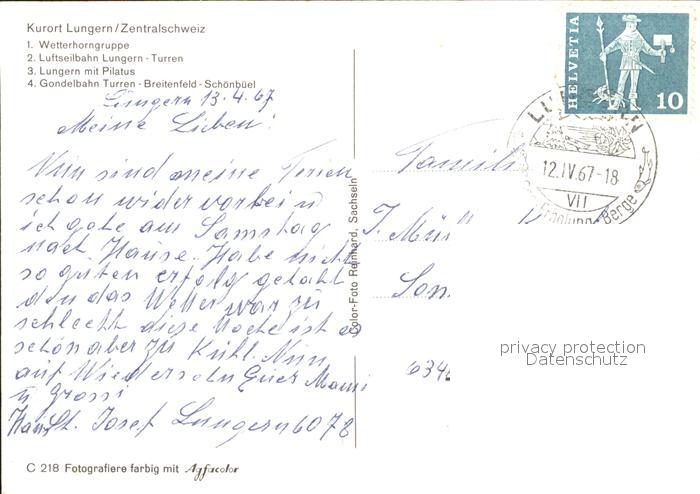 Kurort Lungern/Zentralschweiz
1. Wetterhorngruppe
2. Luftseilbahn Lungern - Turren
3. Lungern mit Pilatus
4. Gondelbahn Turren - Breitenfeld - Schönbüel
Lungern 13.4.67
Meine Lieben!
Nun sind meine Ferien
schon wider vorbei u
ich gehe am Samstag
nach Hause. Habe nicht
so guten erfolg gehabt
den das Wetter war zu
schlecht diese Woche ist es
schön aber zu Kühl. Nun
auf Wiedersehn Euer Mami
u Grossi
Haus St. Josef Lungern 6078
C 218 Fotografiere farbig mit Agfacolor
Color-Foto Reinhard, Sachseln
HELVETIA
10
12.IV.67-18
VII
Berge
Famili
J. Mül
634
privacy protection
Datenschutz